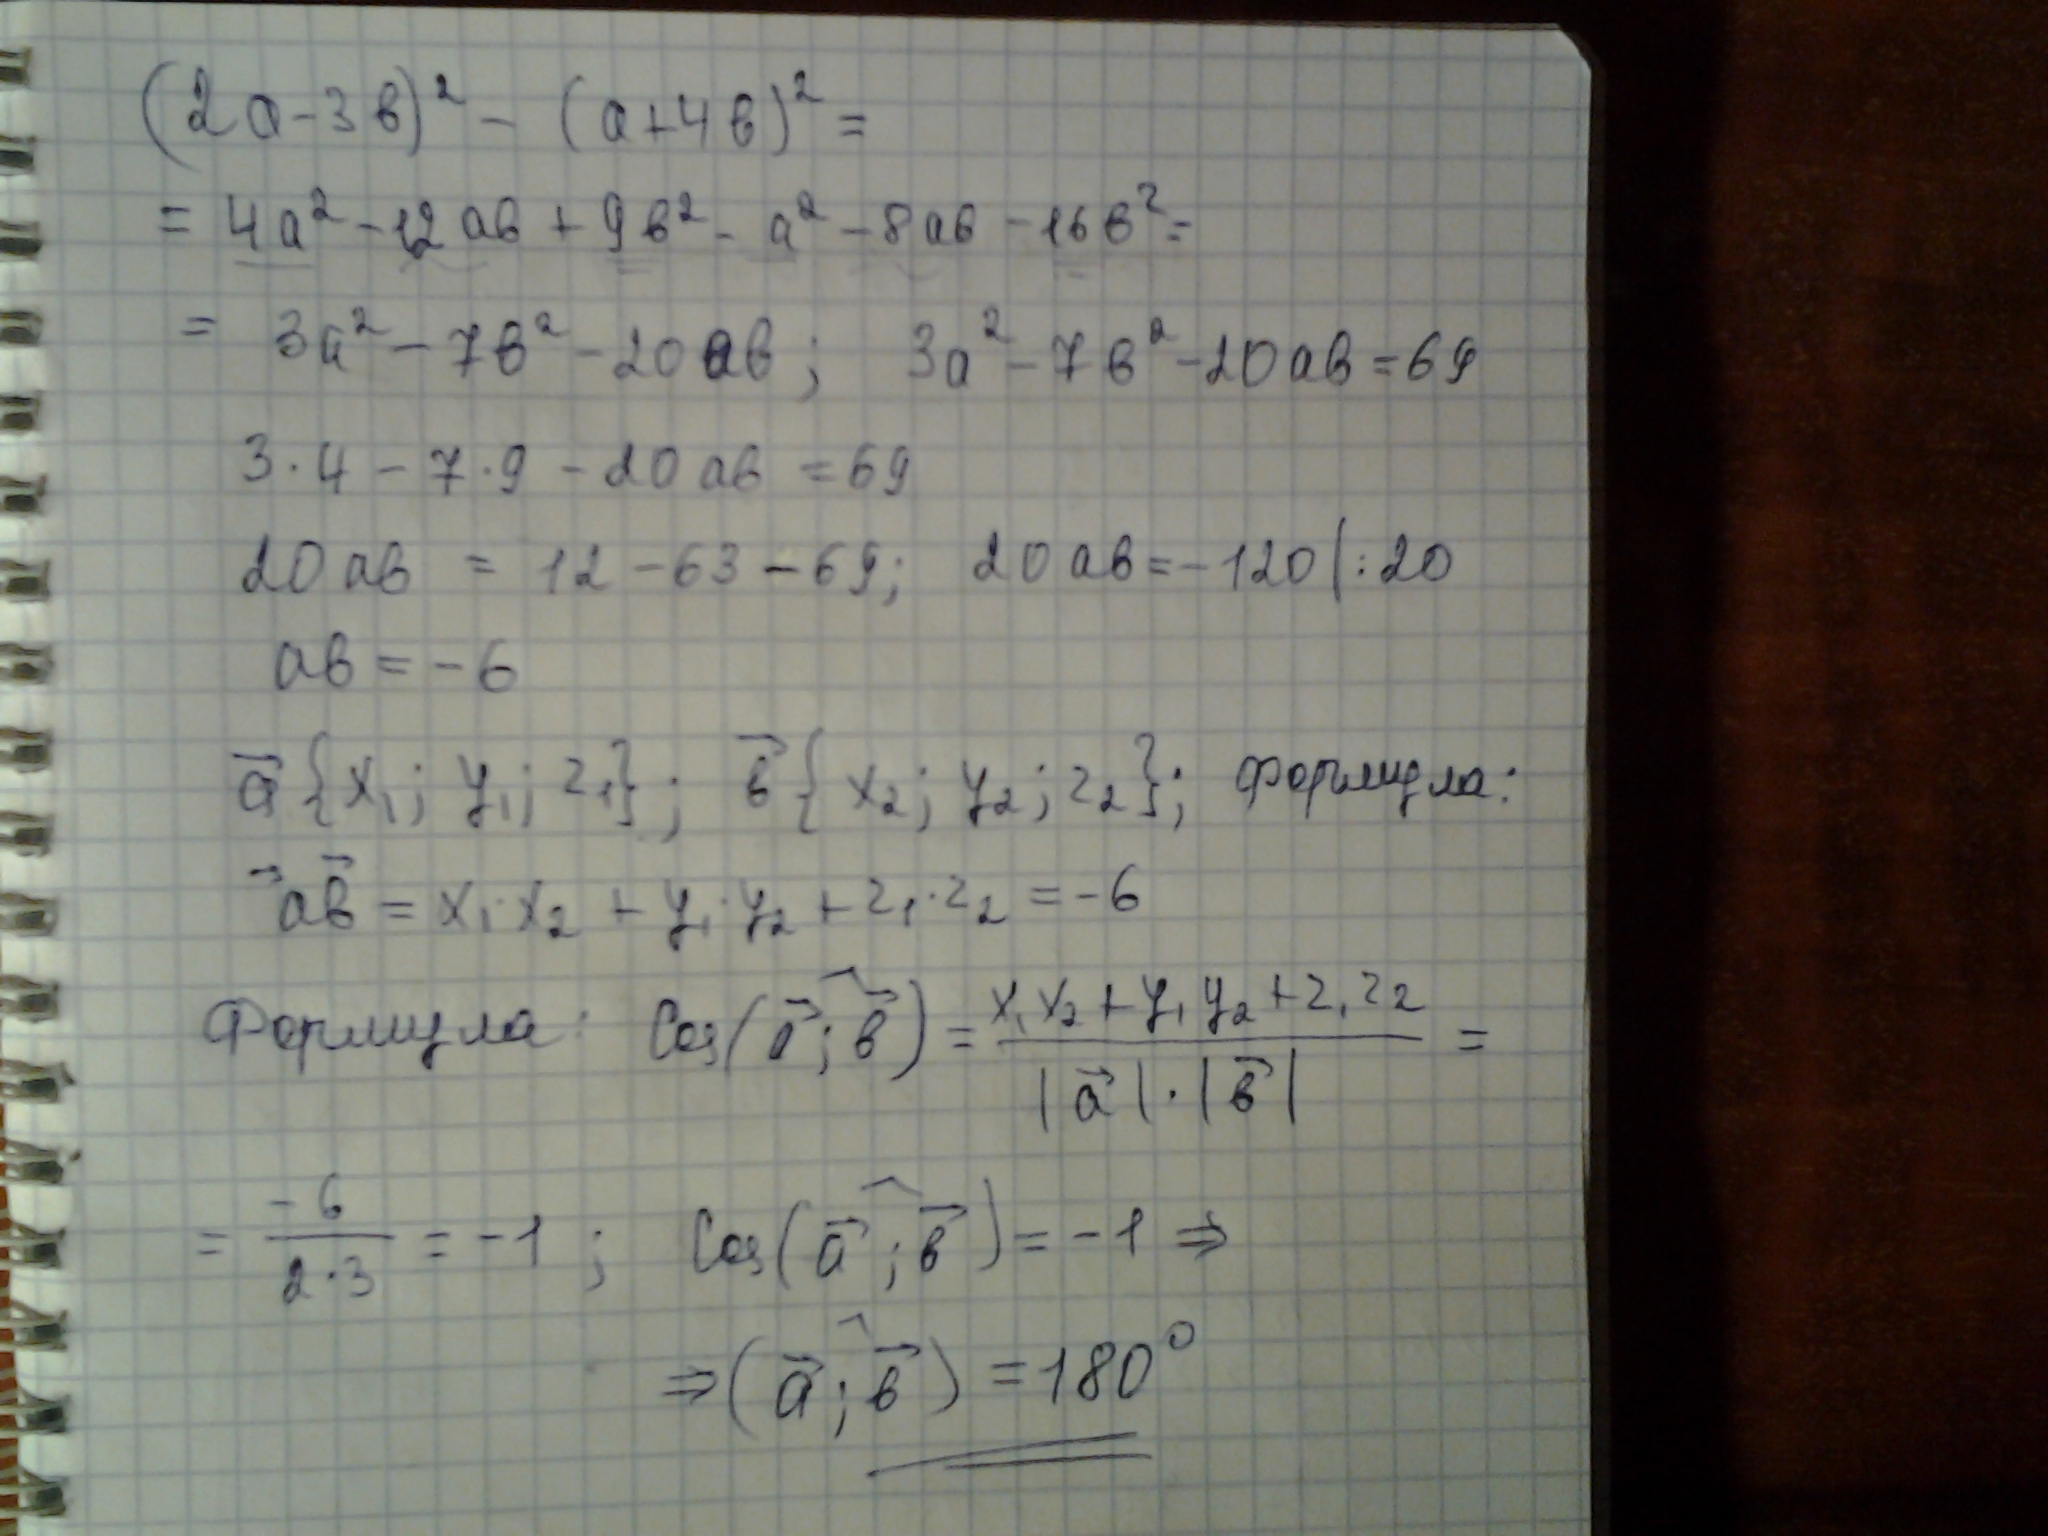 (2а-3в)² - (а+4в)² =
= 4а² - 12ав + 9в² - а² - 8ав - 16в² =
= 3а² - 7в² - 20ав; 3а² - 7в² - 20ав = 69
3·4 - 7·9 - 20ав = 69
20ав = 12 - 63 - 69; 20ав = -120 |:20
ав = -6
a⃗ {x₁; y₁; z₁}; в⃗ {x₂; y₂; z₂}; формула:
a⃗в⃗ = x₁·x₂ + y₁·y₂ + z₁·z₂ = -6
Формула: Cos(a⃗;^в⃗) = (x₁x₂ + y₁y₂ + z₁z₂) / (|a⃗|·|в⃗|) =
= -6 / (2·3) = -1; Cos(a⃗;^в⃗) = -1 ⇒
⇒ (a⃗;^в⃗) = 180°